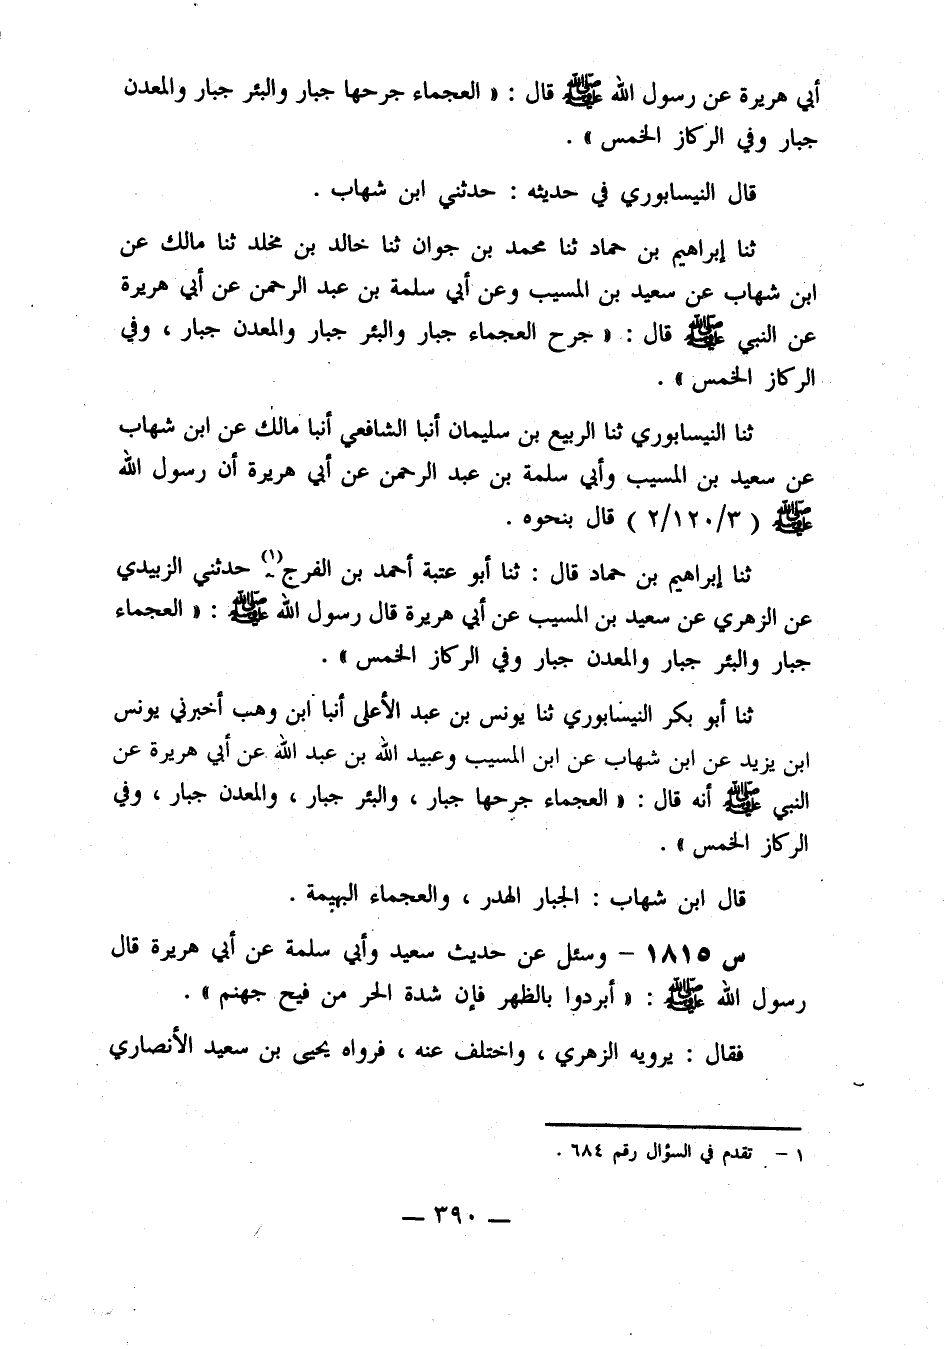 أبي هريرة عن رسول الله ﷺ قال : « العجماء جرحها جبار والبئر جبار والمعدن
جبار وفي الركاز الخمس » .
قال النيسابوري في حديثه : حدثني ابن شهاب .
ثنا إبراهيم بن حماد ثنا محمد بن جوان ثنا خالد بن مخلد ثنا مالك عن
ابن شهاب عن سعيد بن المسيب وعن أبي سلمة بن عبد الرحمن عن أبي هريرة
عن النبي ﷺ قال : « جرح العجماء جبار والبئر جبار والمعدن جبار ، وفي
الركاز الخمس » .
ثنا النيسابوري ثنا الربيع بن سليمان أنبا الشافعي أنبا مالك عن ابن شهاب
عن سعيد بن المسيب وأبي سلمة بن عبد الرحمن عن أبي هريرة أن رسول الله
ﷺ ( ٢/١٢٠/٣ ) قال بنحوه .
ثنا إبراهيم بن حماد قال : ثنا أبو عتبة أحمد بن الفرج(١) حدثني الزبيدي
عن الزهري عن سعيد بن المسيب عن أبي هريرة قال رسول الله ﷺ : « العجماء
جبار والبئر جبار والمعدن جبار وفي الركاز الخمس » .
ثنا أبو بكر النيسابوري ثنا يونس بن عبد الأعلى أنبا ابن وهب أخبرني يونس
ابن يزيد عن ابن شهاب عن ابن المسيب وعبيد الله بن عبد الله عن أبي هريرة عن
النبي ﷺ أنه قال : « العجماء جرحها جبار ، والبئر جبار ، والمعدن جبار ، وفي
الركاز الخمس » .
قال ابن شهاب : الجبار الهدر ، والعجماء البهيمة .
س ١٨١٥ – وسئل عن حديث سعيد وأبي سلمة عن أبي هريرة قال
رسول الله ﷺ : « أبردوا بالظهر فإن شدة الحر من فيح جهنم » .
فقال : يرويه الزهري ، واختلف عنه ، فرواه يحيى بن سعيد الأنصاري
١ – تقدم في السؤال رقم ٦٨٤ .
— ٣٩٠ —